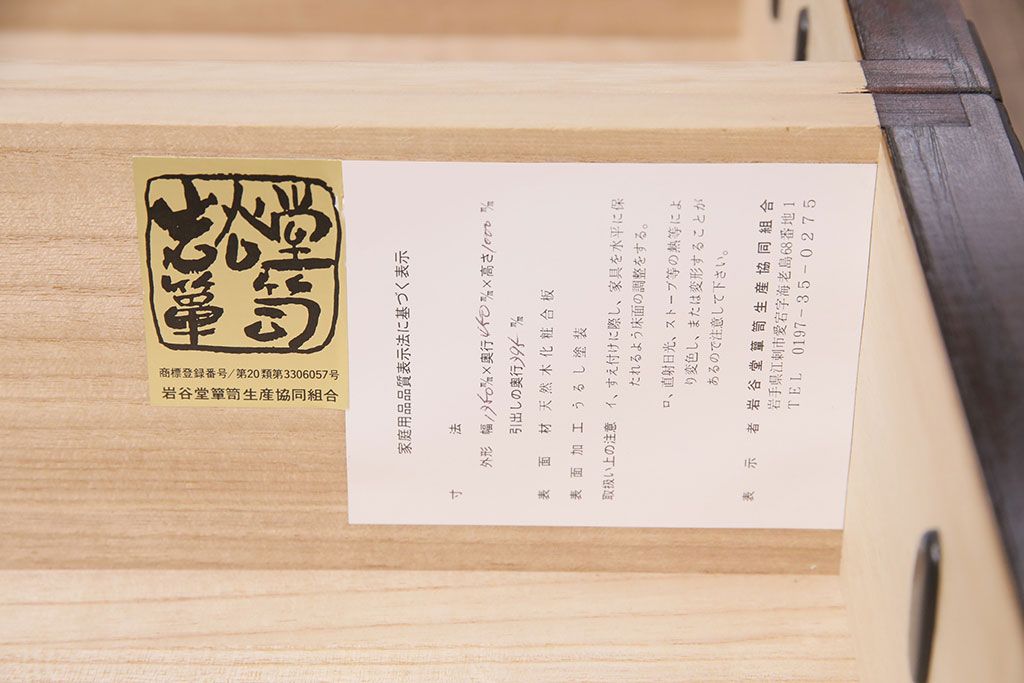 岩谷堂簞笥
商標登録番号/第20類第3306057号
岩谷堂簞笥生産協同組合
家庭用品品質表示法に基づく表示
寸法
外形 幅1350㎜×奥行450㎜×高さ1000㎜
引出しの奥行394㎜
表面材 天然木化粧合板
表面加工 うるし塗装
取扱い上の注意 イ、すえ付けに際し、家具を水平に保
たれるよう床面の調整をする。
ロ、直射日光、ストーブ等の熱等によ
り変色し、または変形することが
あるので注意して下さい。
表示者 岩谷堂簞笥生産協同組合
岩手県江刺市愛宕字海老島68番地1
TEL 0197-35-0275